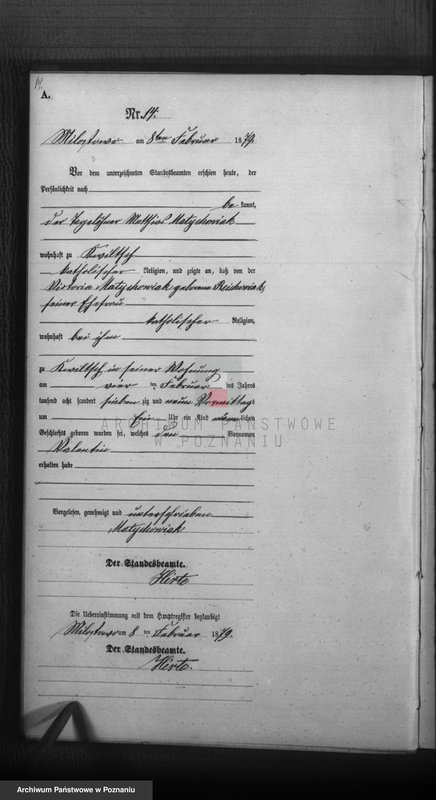 14.
A.
Nr. 14.
Milostowo am 8ten Februar 1879.
Vor dem unterzeichneten Standesbeamten erschien heute, der
Persönlichkeit nach
be kannt,
der Tagelöhner Matthias Matyschowiak
wohnhaft zu Kwiltsch
katholischer Religion, und zeigte an, daß von der
Victoria Matyschowiak geborene
seiner Ehefrau
katholischer Religion,
wohnhaft bei ihm
zu Kwiltsch in seiner Wohnung
am vier ten Februar des Jahres
tausend acht hundert sieben zig und neun Vormittags
um Ein Uhr ein Kind männlichen
Geschlechts geboren worden sei, welches den Vornamen
Valentin
erhalten habe
Vorgelesen, genehmigt und unterschrieben
Matyschowiak
Der Standesbeamte.
Hirte
Die Uebereinstimmung mit dem Hauptregister beglaubigt
Milostowo am 8 ten Februar 1879.
Der Standesbeamte.
Hirte.
ARCHIWUM PAŃSTWOWE
W POZNANIU
Archiwum Państwowe w Poznaniu